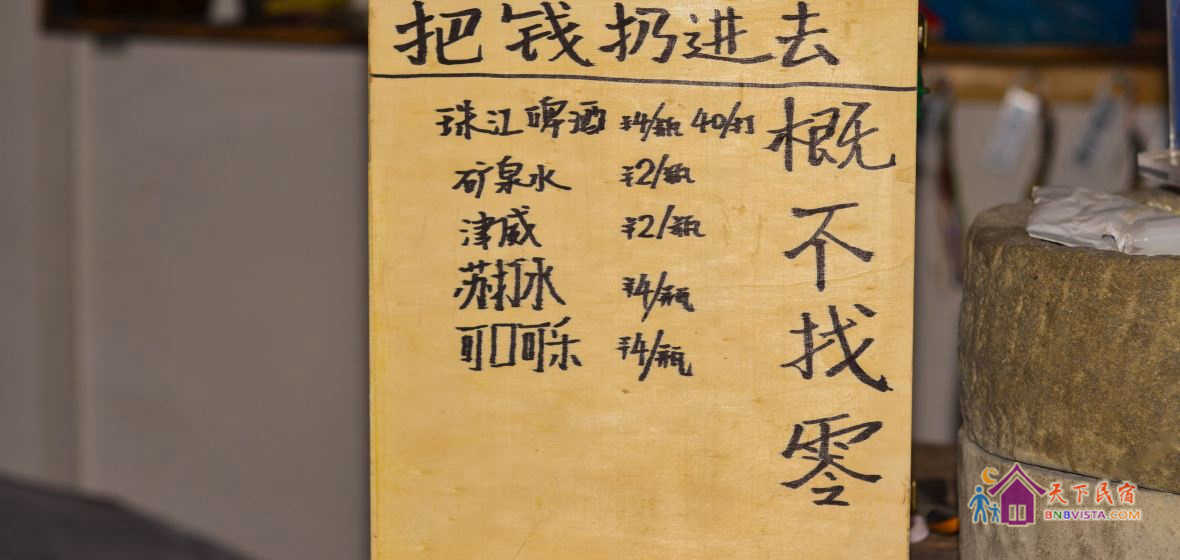 把钱扔进去
珠江啤酒 ¥4/瓶 40/打
矿泉水 ¥2/瓶
津威 ¥2/瓶
苏打水 ¥4/瓶
可口可乐 ¥4/瓶
概不找零
天下民宿
BNBVISTA.COM